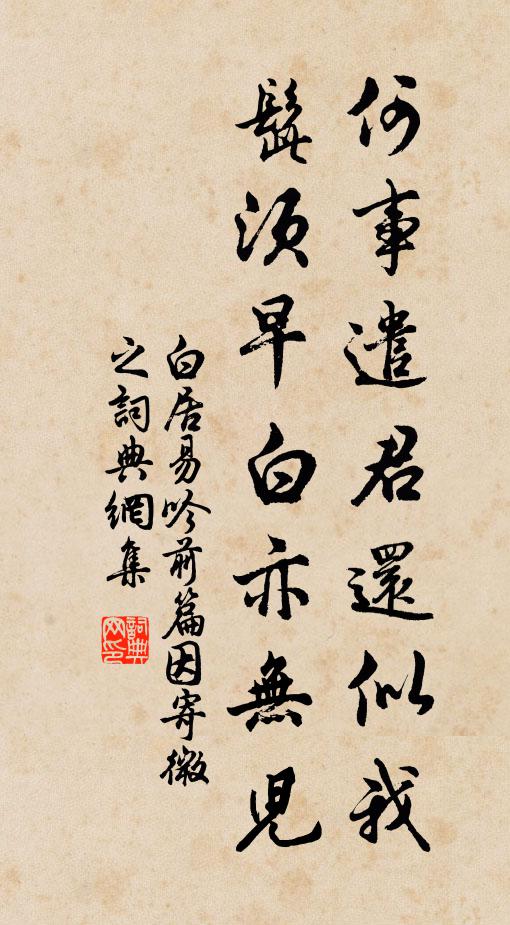 何事遣君還似我
髭須早白亦無兒
白居易吟前篇因寄微
之詞典網集
詞典網印